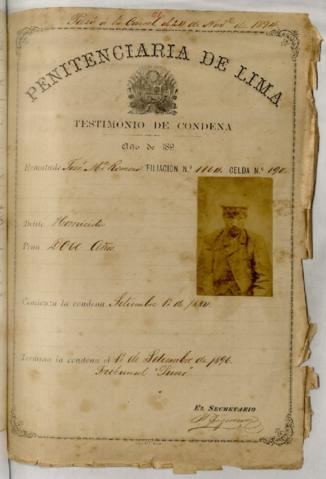 Pasó a la Carcel el 24 de Nov.e de 1894.
PENITENCIARIA DE LIMA
TESTIMONIO DE CONDENA
Año de 189
Rematado José M.a Romero FILIACION N.o CELDA N.o
Delito Homicidio
Pena Años
Comienza la condena Setiembre de 1894
Termina la condena el de Setiembre de 1896
Tribunal
EL SECRETARIO